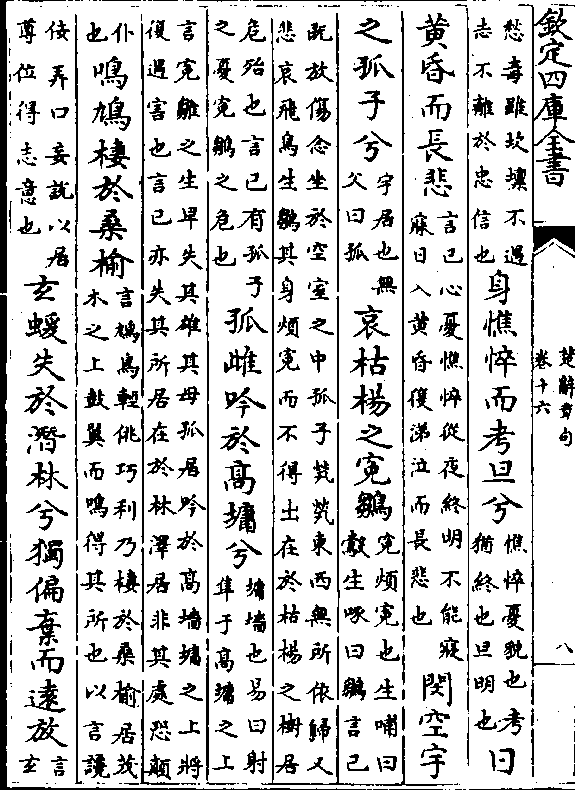 欽定四庫全書
愁毒雖坎壈不遇
志不離於忠信也
身憔悴而考旦兮
憔悴憂貌也考
猶終也旦明也
日
黃昏而長悲
言己心憂憔悴從夜終明不能寢
寐日入黃昏復涕泣而長悲也
閔空宇
之孤子兮
宇居也無
父曰孤
哀枯楊之寃鶵
寃煩寃也生哺曰
鷇生啄曰鶵言己
既放傷念坐於空室之中孤子煢煢東西無所依歸又
悲哀飛鳥生鶵其身煩寃而不得出在於枯楊之樹居
危殆也言己有孤子
之憂寃鶵之危也
孤雌吟於高墉兮
墉墻也易曰射
隼于高墉之上
言寃雛之生早失其雄其母孤居吟於高墻墉之上將
復遇害也言己亦失其所居在於林澤居非其處恐顛
仆
也
鳴鳩棲於桑榆
言鳩鳥輕佻巧利乃棲於桑榆居茂
木之上鼓翼而鳴得其所也以言讒
佞弄口妄說以居
尊位得志意也
玄蝯失於潛林兮獨偏棄而遠放
言
玄
楚辭章句
卷十六
八